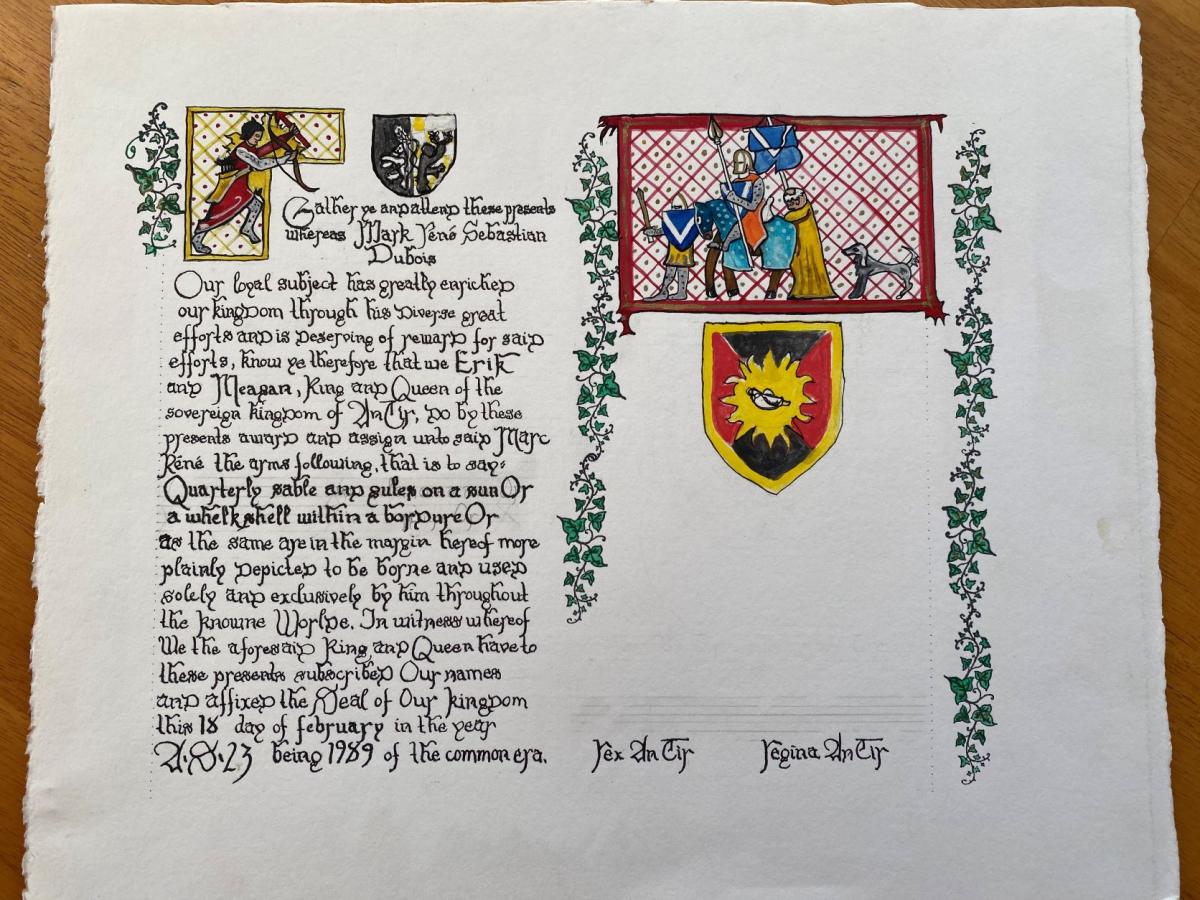 Gather ye and attend these presents
whereas Mark René Sebastian
Dubois
Our loyal subject has greatly enriched
our kingdom through his diverse great
efforts and is deserving of reward for said
efforts, know ye therefore that we Erik
and Meagan, King and Queen of the
sovereign kingdom of AnTir, do by these
presents award and assign unto said Marc
René the arms following, that is to say:
Quarterly sable and gules on a sun Or
a whelk shell within a bordure Or
as the same are in the margin hereof more
plainly depicted to be borne and used
solely and exclusively by him throughout
the knowne Worlde. In witness whereof
We the aforesaid King and Queen have to
these presents subscribed Our names
and affixed the Seal of Our kingdom
this 18 day of february in the year
A.S.23 being 1989 of the common era.
Rex AnTir Regina AnTir